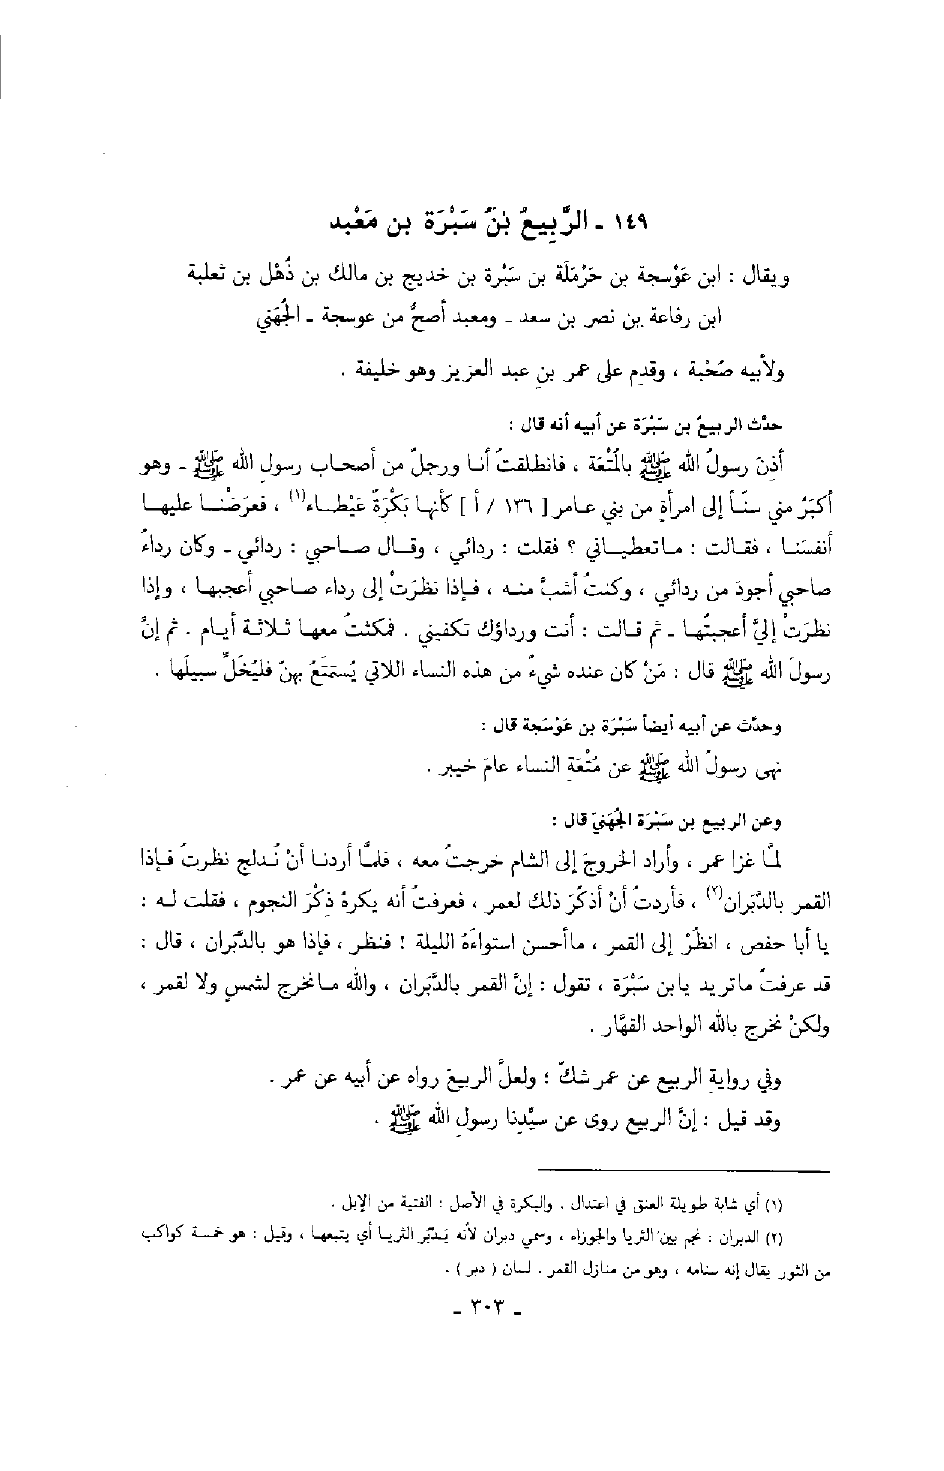 ١٤٩ - الرَّبِيعُ بْنُ سَبْرَة بن مَعْبد
ويقال : ابن عَوْسجة بن حَرْمَلَة بن سَبْرة بن خديج بن مالك بن ذُهْل بن ثعلبة
ابن رفاعة بن نصر بن سعد - ومعبد أصحُّ من عوسجة - الجُهَني
ولأبيه صُحْبة ، وقدِم على عمر بنِ عبد العزيز وهو خليفة .
حدَّث الربيعُ بن سَبْرَة عن أبيه أنه قال :
أذِنَ رسولُ الله ﷺ بالمُتْعَة ، فانطلقتُ أنا ورجلٌ من أصحاب رسول الله ﷺ - وهو
أكبَرُ مني سنّاً إلى امرأةٍ من بني عامر [ ١٣٦ / أ ] كأنها بَكْرَةٌ عَيْطاء(١) ، فعرَضْنا عليها
أنفسَنا ، فقالت : ماتعطياني ؟ فقلت : ردائي ، وقال صاحبي : ردائي - وكان رداءُ
صاحبي أجودَ من ردائي ، وكنتُ أشبَّ منه ، فإذا نظرَتْ إلى رداء صاحبي أعجبها ، وإذا
نظرَتْ إليَّ أعجبتُها - ثم قالت : أنت ورداؤك تكفيني . فمكثتُ معها ثلاثة أيام . ثم إنَّ
رسولَ الله ﷺ قال : مَنْ كان عنده شيءٌ من هذه النساء اللاتي يُستمتَعُ بهنّ فليُخَلِّ سبيلَها .
وحدَّث عن أبيه أيضاً سَبْرَة بن عَوْسَجة قال :
نهى رسولُ الله ﷺ عن مُتْعَةِ النساء عامَ خيبر .
وعن الربيع بن سَبْرَة الجُهَنيّ قال :
لمَّا غزا عمر ، وأراد الخروجَ إلى الشام خرجتُ معه ، فلمَّا أردنا أنْ نُدلج نظرتُ فإذا
القمر بالدَّبَران(٢) ، فأردتُ أنْ أذكُرَ ذلك لعمر ، فعرفتُ أنه يكرهُ ذِكْرَ النجوم ، فقلت له :
يا أبا حفص ، انظُرْ إلى القمر ، ماأحسن استواءَهُ الليلة ! فنظر ، فإذا هو بالدَّبران ، قال :
قد عرفتُ ماتريد يابن سَبْرَة ، تقول : إنَّ القمر بالدَّبَران ، والله مانخرج لشمسٍ ولا لقمر ،
ولكنْ نخرج بالله الواحد القهَّار .
وفي روايةِ الربيع عن عمر شكٌّ ؛ ولعلَّ الربيعَ رواه عن أبيه عن عمر .
وقد قيل : إنَّ الربيع روى عن سيِّدنا رسولِ الله ﷺ .
(١) أي شابة طويلة العنق في اعتدال . والبكرة في الأصل : الفتية من الإبل .
(٢) الدبران : نجم بين الثريا والجوزاء ، وسمي دبران لأنه يَدبُر الثريا أي يتبعها ، وقيل : هو خمسة كواكب
من الثور يقال إنه سنامه ، وهو من منازل القمر . لسان ( دبر ) .
- ٣٠٣ -